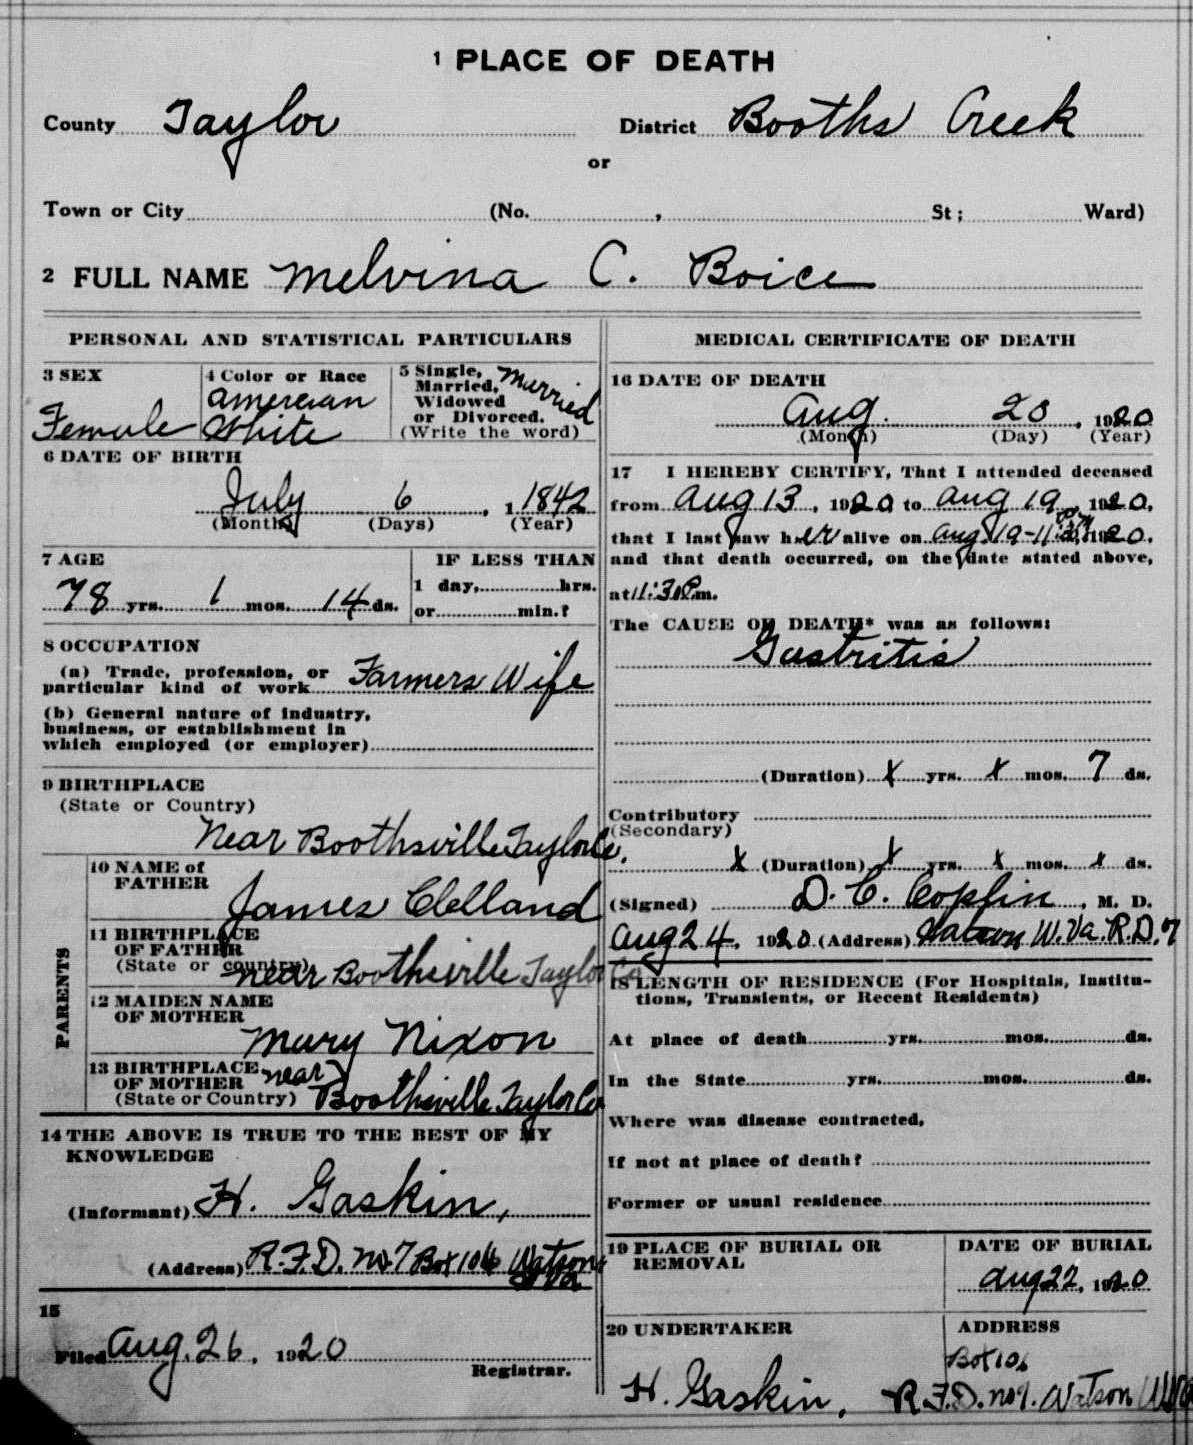 1 PLACE OF DEATH
County Taylor District Booths Creek
or
Town or City (No. , St; Ward)
2 FULL NAME Melvina C. Boice
PERSONAL AND STATISTICAL PARTICULARS
3 SEX
Female
4 Color or Race
Amercian
White
5 Single,
Married,
Widowed
or Divorced.
(Write the word)
Married
6 DATE OF BIRTH
July 6, 1 1842
(Month) (Days) (Year)
7 AGE
78 yrs. 1 mos. 14 ds.
IF LESS THAN
1 day, hrs.
or min.?
8 OCCUPATION
(a) Trade, profession, or
particular kind of work Farmers Wife
(b) General nature of industry,
business, or establishment in
which employed (or employer)
9 BIRTHPLACE
(State or Country)
Near Boothsville Taylor Co.
PARENTS
10 NAME of
FATHER
James Clelland
11 BIRTHPLACE
OF FATHER
(State or country)
near Boothsville Taylor Co
12 MAIDEN NAME
OF MOTHER
Mary Nixon
13 BIRTHPLACE
OF MOTHER near
(State or Country) Boothsville Taylor Co
14 THE ABOVE IS TRUE TO THE BEST OF MY
KNOWLEDGE
(Informant) H. Gaskin,
(Address) R.F.D. No 7 Box 106 Watson
W Va
15
Filed Aug. 26, 1920
Registrar.
MEDICAL CERTIFICATE OF DEATH
16 DATE OF DEATH
Aug. 20, 1920
(Month) (Day) (Year)
17 I HEREBY CERTIFY, That I attended deceased
from Aug 13, 1920 to Aug 19, 1920,
that I last saw h er alive on Aug. 19 - 11:30 P.M, 1920.
and that death occurred, on the date stated above,
at 11:30 P.m.
The CAUSE OF DEATH* was as follows:
Gastritis
(Duration) X yrs. X mos. 7 ds.
Contributory
(Secondary)
X (Duration) X yrs. X mos. X ds.
(Signed) D. C. Coplin, M. D.
Aug 24, 1920 (Address) Watson W. Va. R.D. 7
18 LENGTH OF RESIDENCE (For Hospitals, Institu-
tions, Transients, or Recent Residents)
At place of death yrs. mos. ds.
In the State yrs. mos. ds.
Where was disease contracted,
If not at place of death?
Former or usual residence
19 PLACE OF BURIAL OR
REMOVAL
DATE OF BURIAL
Aug 22, 1920
20 UNDERTAKER
H. Gaskin,
ADDRESS
Box 106
R.F.D. No 7. Watson W Va